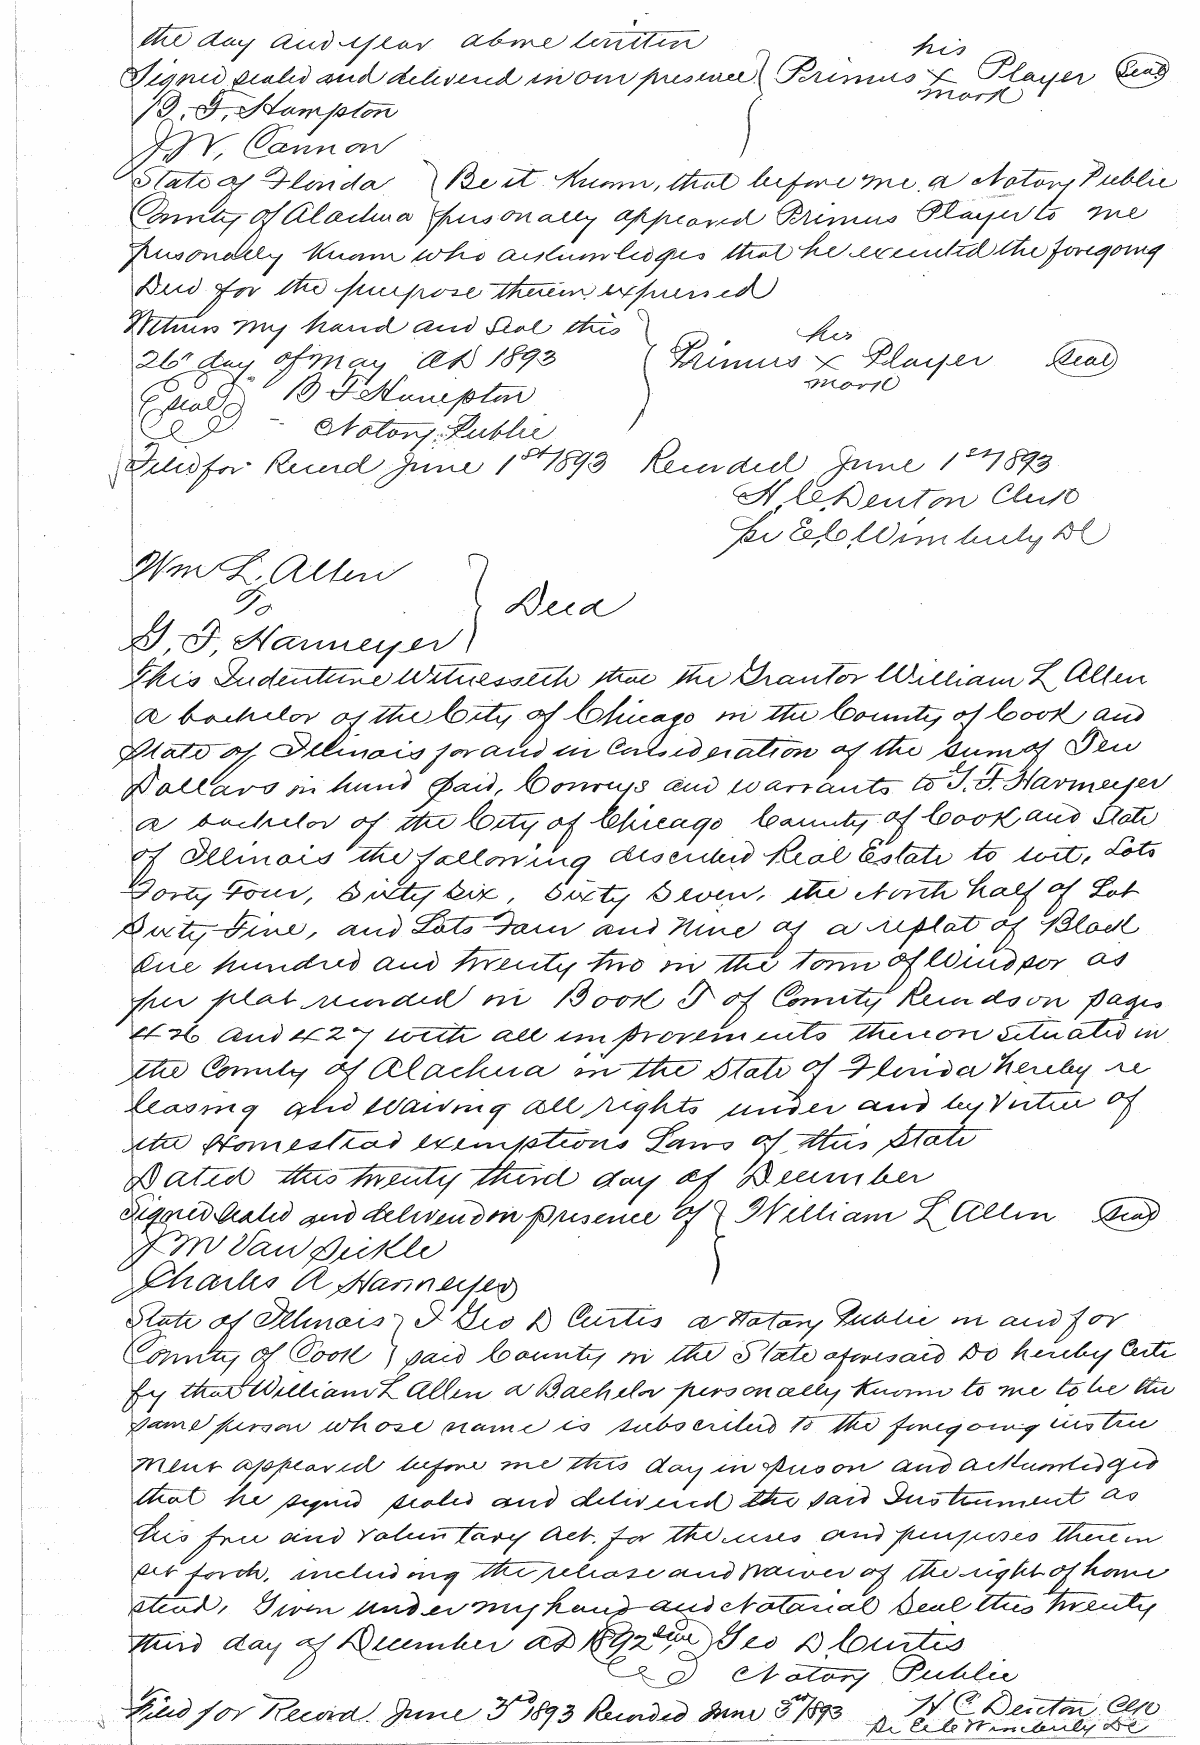 the day and year above written
Signed sealed and delivered in our presence } his
Primus x Player (Seal)
mark
B. F. Hampton
J. W. Cannon
State of Florida } Be it Known, that before me a Notary Public
County of Alachua } personally appeared Primus Player to me
personally known who acknowledges that he executed the foregoing
Deed for the purpose therein expressed
Witness my hand and seal this } his
26" day of May AD 1893 Primus x Player (Seal)
mark
(Seal) B F Hampton
Notary Public
Filed for Record June 1st 1893 Recorded June 1st 1893
H. C. Denton Clerk
Per E. C. Wimberly DC
Wm L. Allen
To } Deed
G. F. Harmeyer
This Indenture Witnesseth that the Grantor William L Allen
a bachelor of the City of Chicago in the County of Cook and
State of Illinois for and in Consideration of the sum of Ten
Dollars in hand paid, Conveys and warrants to G. F. Harmeyer
a bachelor of the City of Chicago County of Cook and State
of Illinois the following described Real Estate to wit, Lots
Forty Four, Sixty Six, Sixty Seven, the North half of Lot
Sixty Five, and Lots Four and Nine of a replat of Block
One hundred and twenty two in the town of Windsor as
per plat recorded in Book T of County Records on pages
426 and 427 with all improvements thereon situated in
the County of Alachua in the State of Florida hereby re
leasing and waiving all rights under and by virtue of
the Homestead exemptions Laws of this State
Dated this twenty third day of December
Signed Sealed and delivered in presence of } William L Allen (Seal)
J M Van Sickle
Charles A Harmeyer
State of Illinois } I Geo D Curtis a Notary Public in and for
County of Cook } said County in the State aforesaid Do hereby Certi
fy that William L Allen a Bachelor personally known to me to be the
same person whose name is subscribed to the foregoing instru
ment appeared before me this day in person and acknowledged
that he signed sealed and delivered the said Instrument as
his free and voluntary Act. for the uses and purposes therein
set forth, including the release and waiver of the right of home
stead, Given under my hand and Notarial Seal this twenty
third day of December AD 1892 (Seal) Geo D. Curtis
Notary Public
Filed for Record June 3rd 1893 Recorded June 3rd 1893 H C Denton Clk
Per E C Wimberly DC